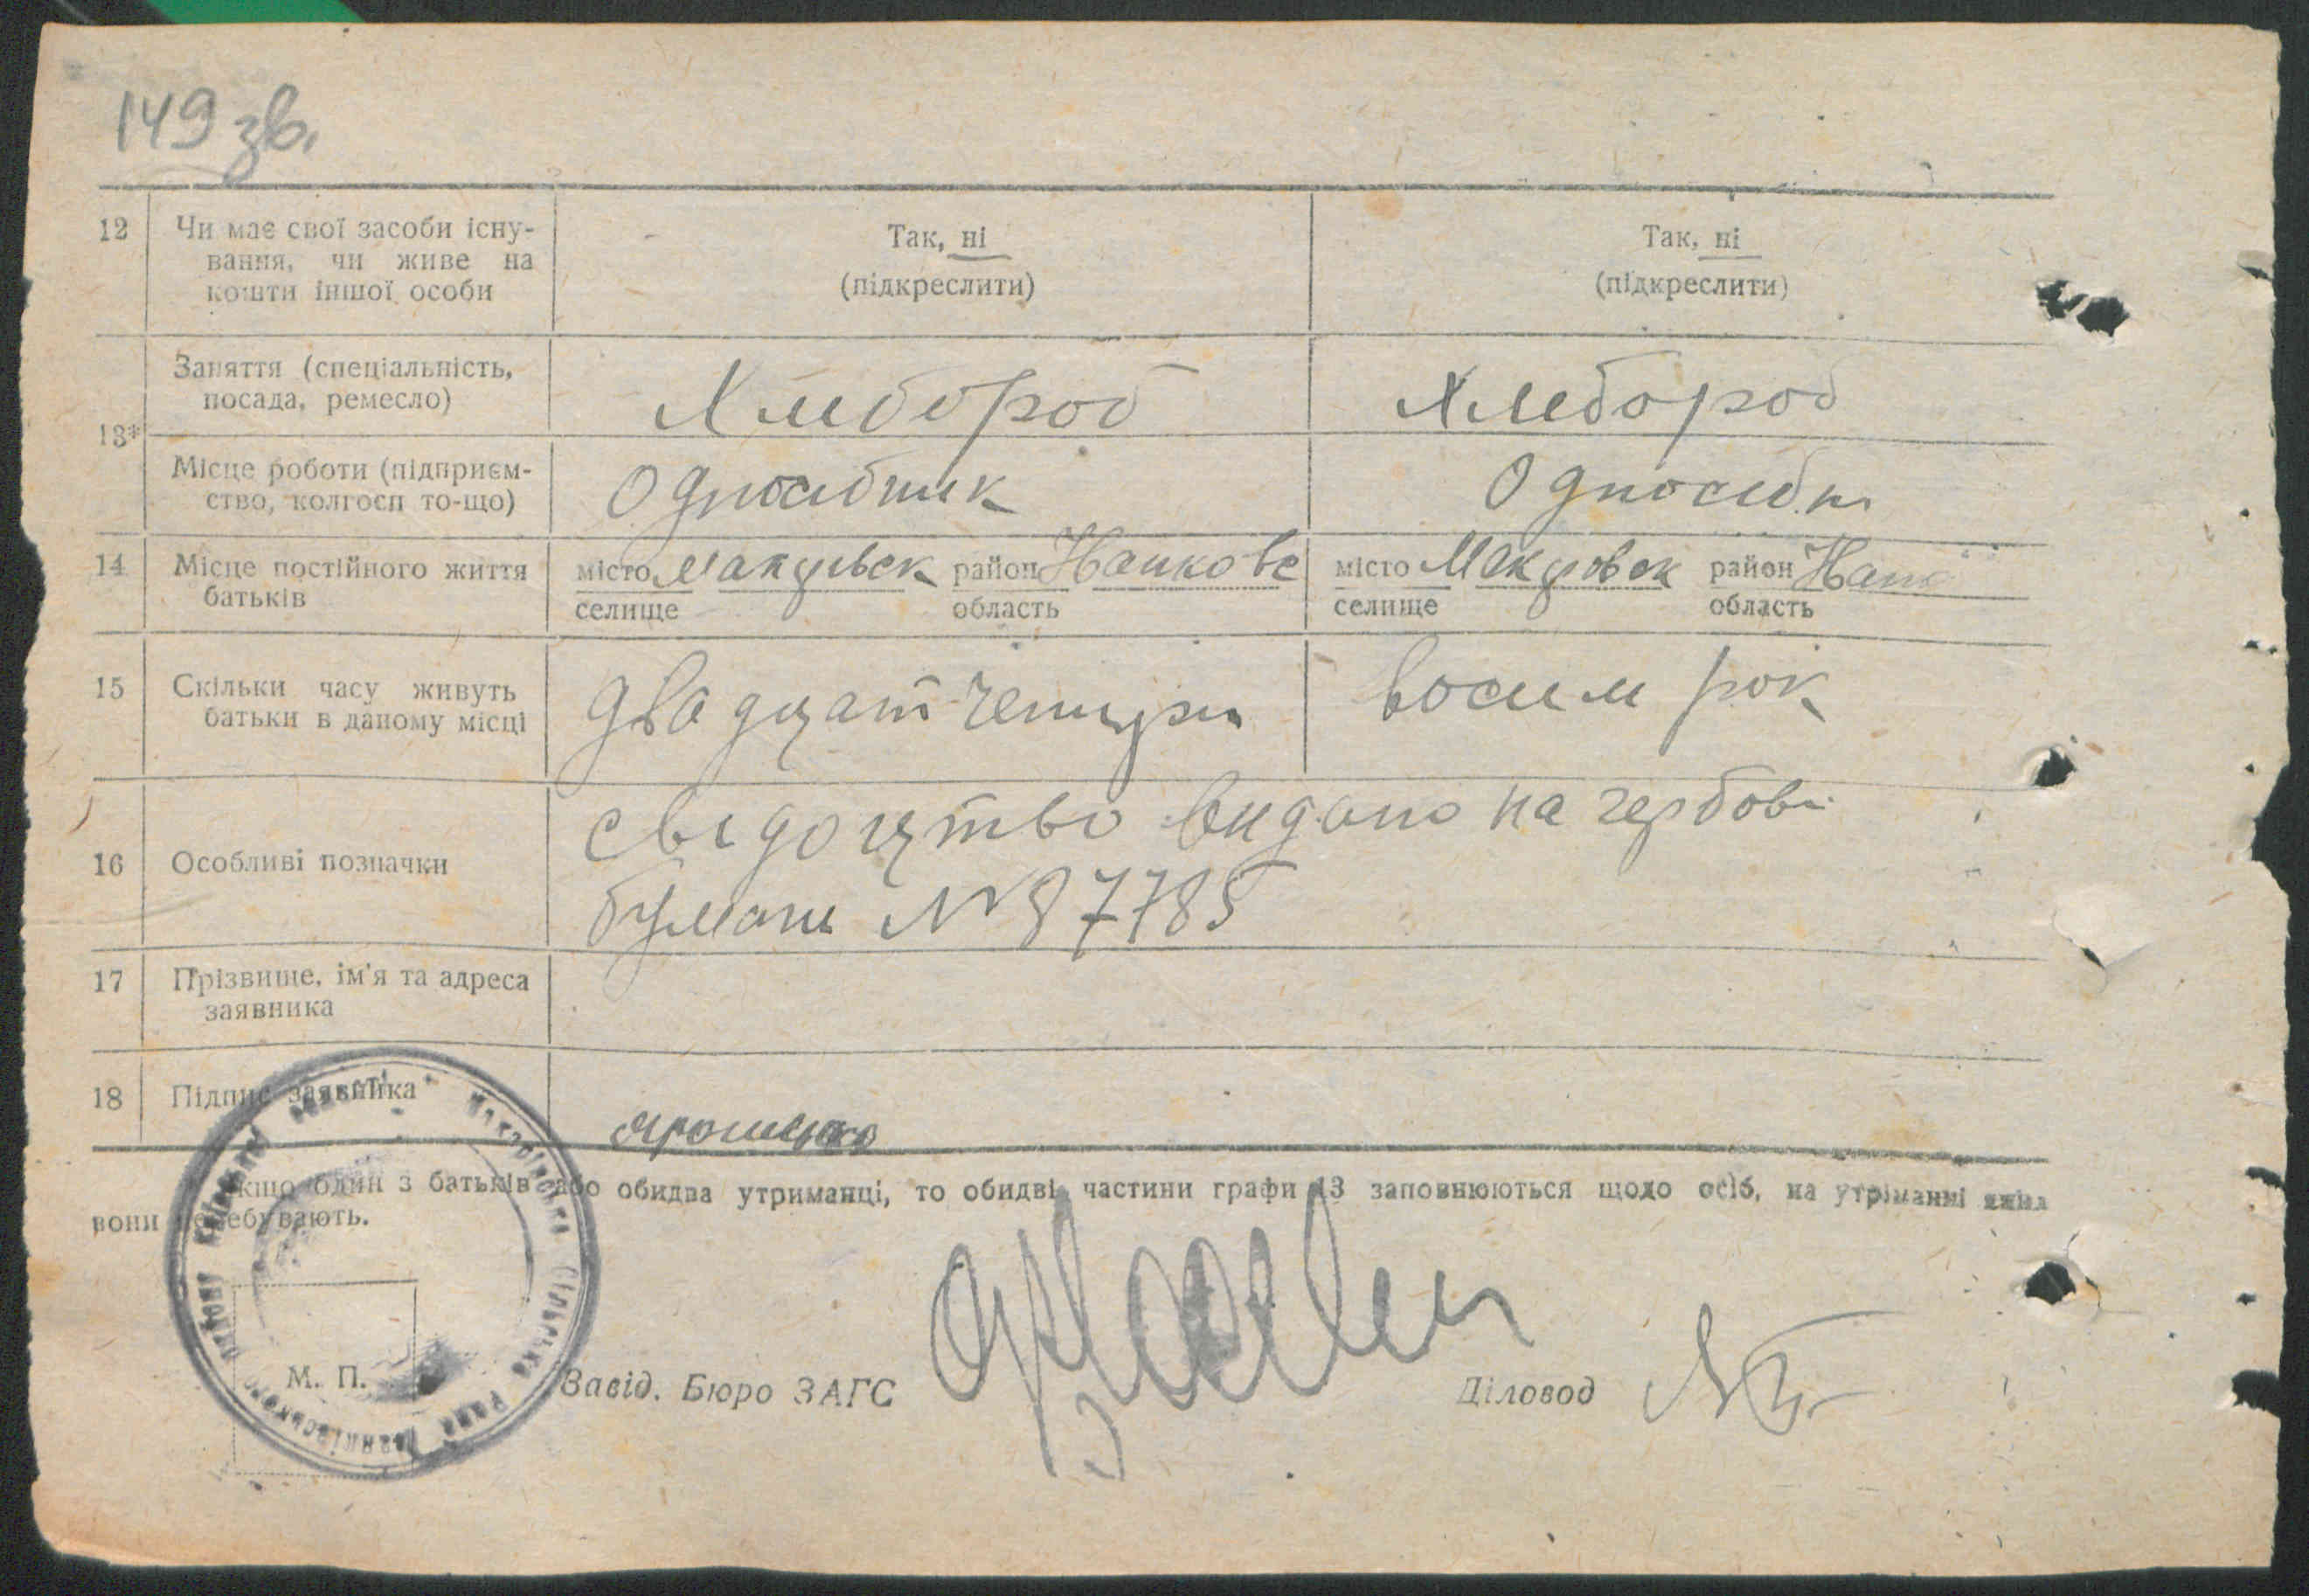 149 зв.
12 Чи має свої засоби існу-
вання, чи живе на
кошти іншої особи
Так, ні
(підкреслити)
Так, ні
(підкреслити)
13*
Заняття (спеціальність,
посада, ремесло)
Хлебороб
Хлебороб
Місце роботи (підприєм-
ство, колгосп то-що)
Односибник
Односибн
14 Місце постійного життя
батьків
місто район
селище область
місто район
селище область
15 Скільки часу живуть
батьки в даному місці
двадцат четири
восим рок
16 Особливі позначки
свідоцтво видано на гербові
бумаги № 87785
17 Прізвище, ім'я та адреса
заявника
18 Підпис заявника
якщо один з батьків або обидва утриманці, то обидві частини графи 13 заповнюються щодо осіб, на утріманмі яких
вони перебувають.
М. П.
Завід. Бюро ЗАГС
Діловод
Сільська Рада
району Київської області